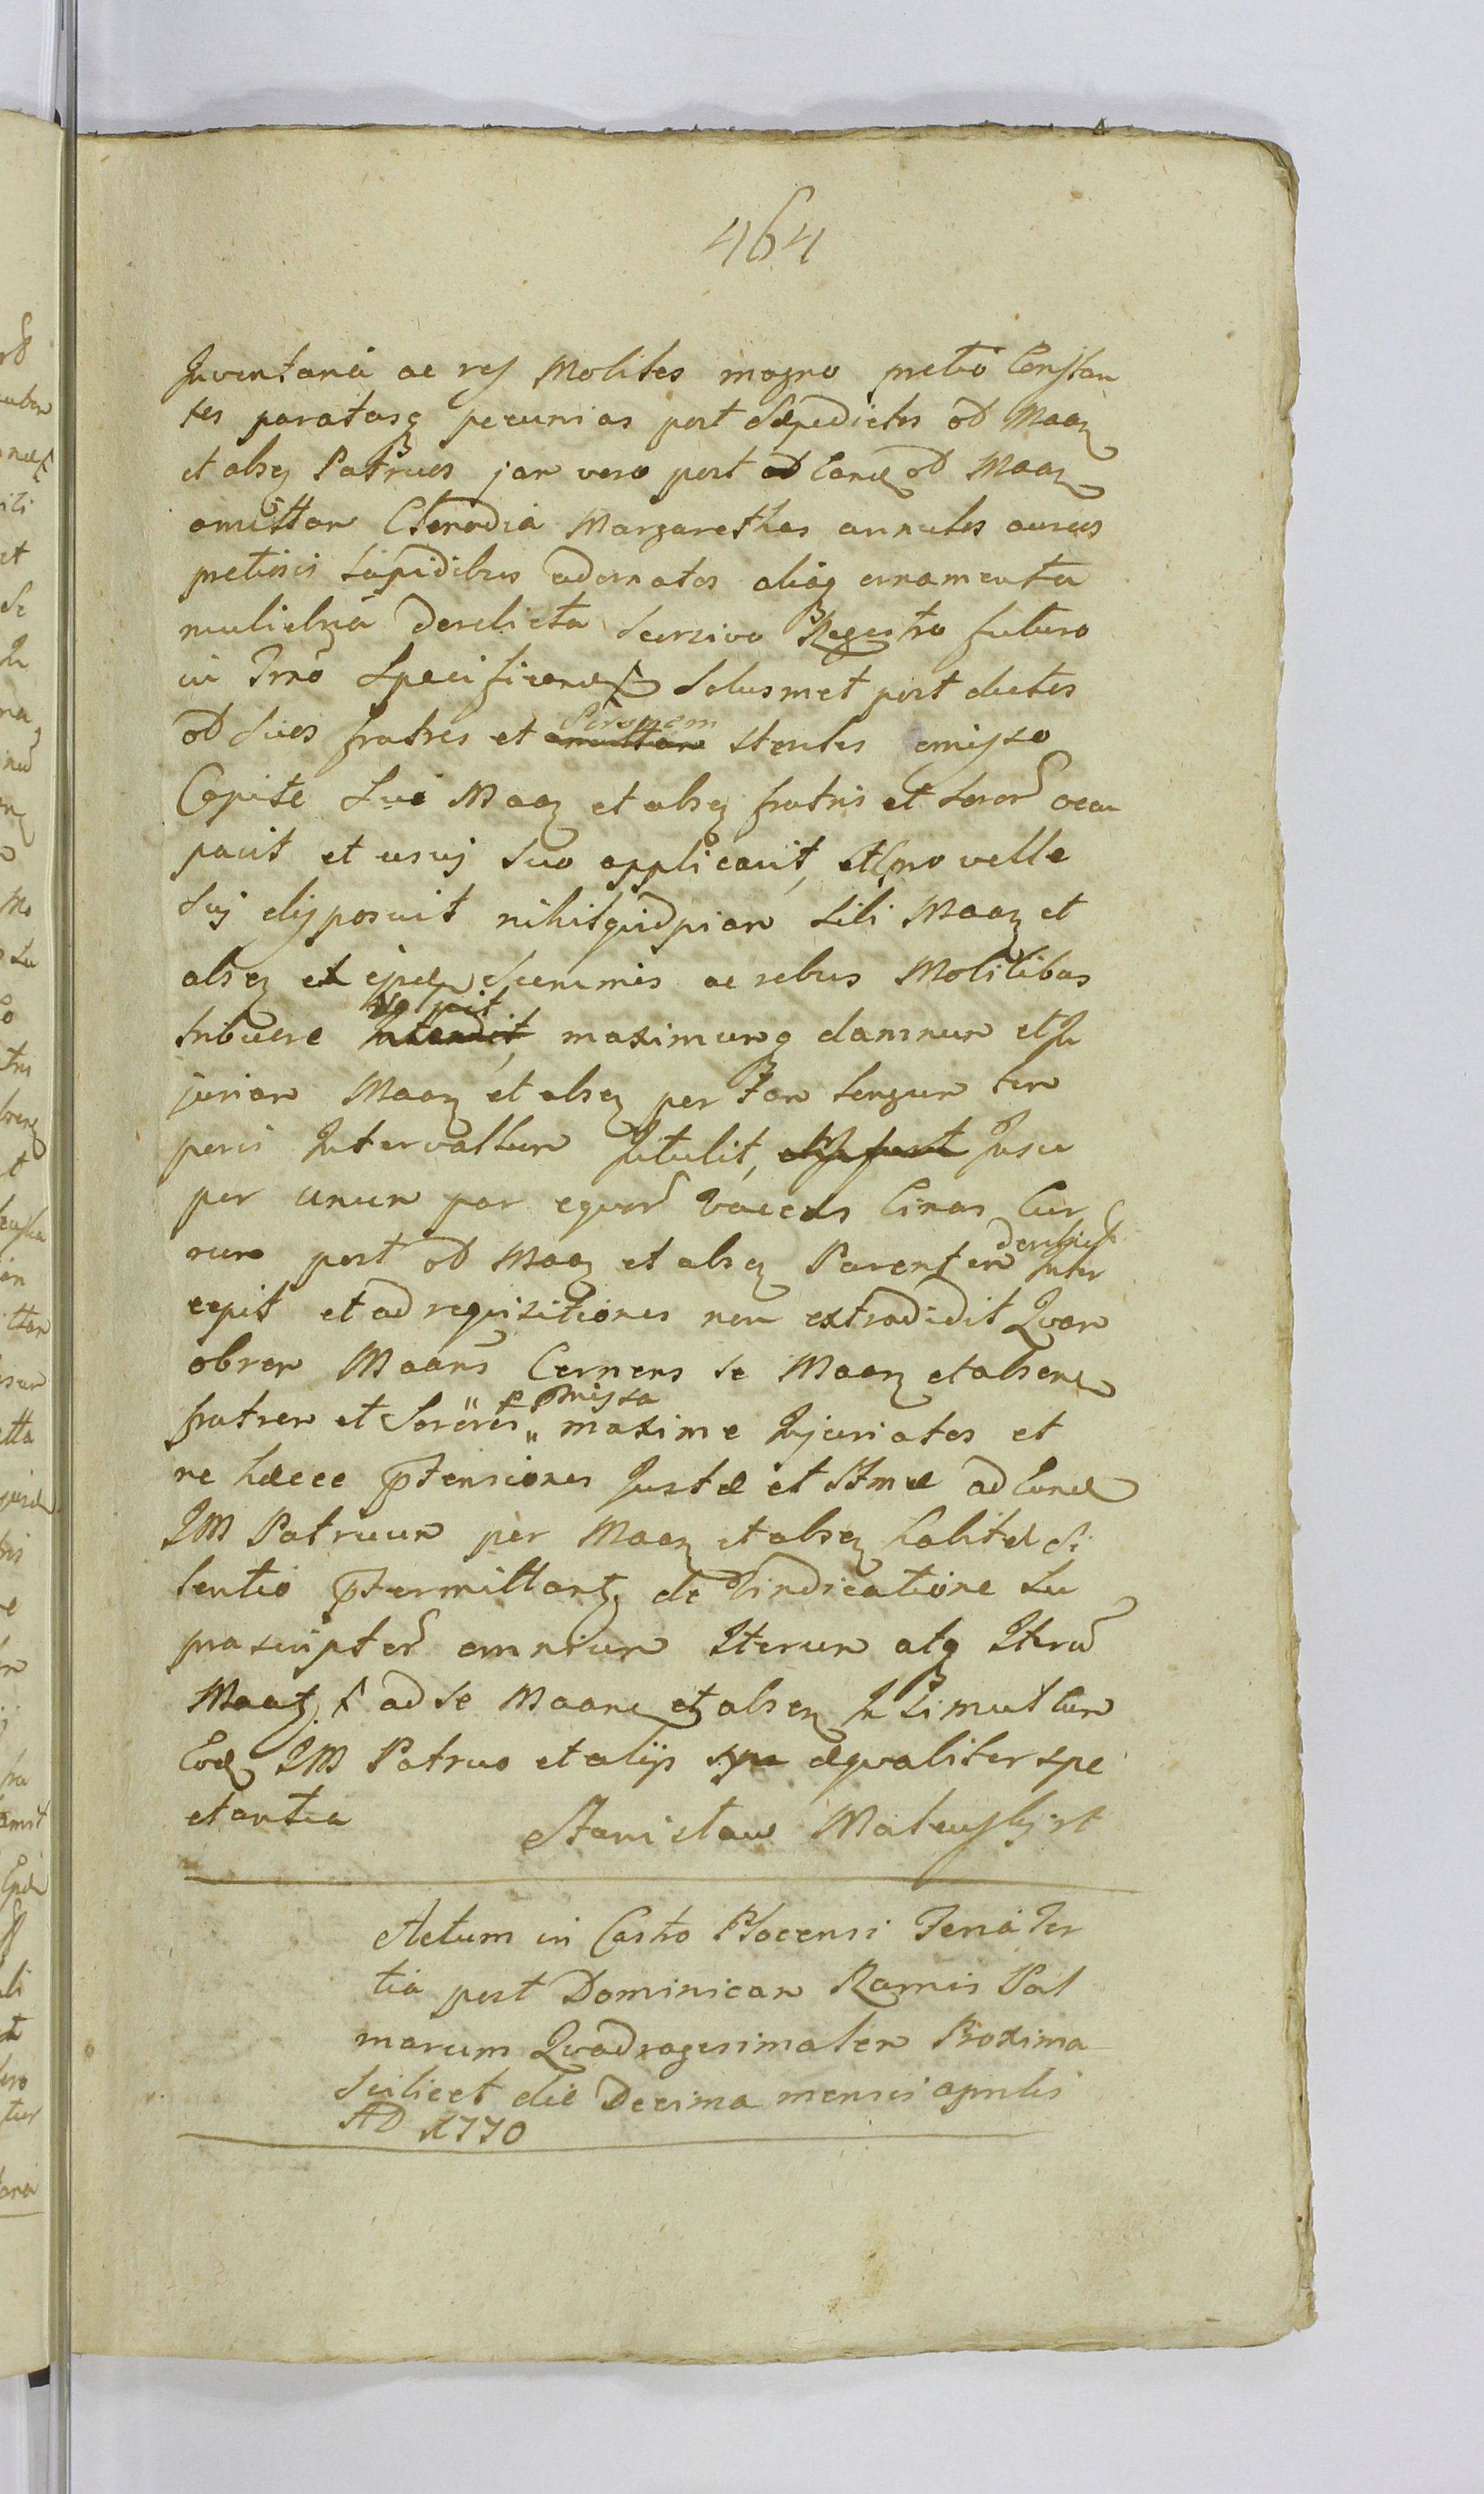 464
Inventaria ac res Mobiles magno pretio Constan
tes paratasq pecunias post Saepedictos od Maaz
et absq Patruos jam vero post od Eand od Maaz
amittam Clenodia Margarethas annulos aureos
pretiosis Lapidibus adornatos aliaq ornamenta
muliebria derelicta Seorsivo Regestro futuro
in Trmo Specificand Solusmet post dictos
od Suos fratres et amittam Sororem steriles omisso
Capite Suo Maaz et absq fratris et Soror occu
pavit et usuj Suo applicavit, et pro velle
Suj disposuit nihilquidpiam Sibi Maaz et
absq ex Summis ac rebus Mobilibus
tribuere Intendit Voluit, maximumq damnum et In
juriam Maaz et absq per tam longum tem
poris Intervallum Intulit, Insu
per unum par equor Vaccas binas Cur
rum post od Maaz et absq Parentem derelict Inter
cepit et ad requisitiones non extradidit Quam
obrem Maans Cernens se Maaz et absene
fratrem et Sorores pmissa maxime Injuriatos et
ne haecce ptensiones Justae et Ltmae ad Eund
IM Patruum per Maaz et absq habitae Si
lentio ptermittantz de Vindicatione Su
prascriptor omnium Iterum atq Iteru
Maatz ad se Maane et absen In Simul cum
Eod IM Patruo et alijs spe aequaliter spe
ctantia
Stanislaw
Actum in Castro Plocensi Feria Ter
tia post Dominicam Ramis Pal
marum Quadragesimalem Proxima
Scilicet die Decima mensis aprilis
AD 1770